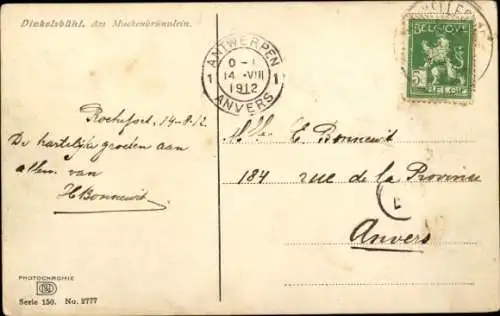 Dinkelsbühl. Am Muckenbrünnlein.
ANTWERPEN
1 14 -VIII 1
1912
ANVERS
BELGIQUE
5
BELGIË
Rochefort, 14-8-12
De hartelijke groeten aan
allen. van
H Bonnewit
Mlle E. Bonnewit
184 rue de la Province
Anvers
PHOTOCHROMIE
Serie 150. No. 2777